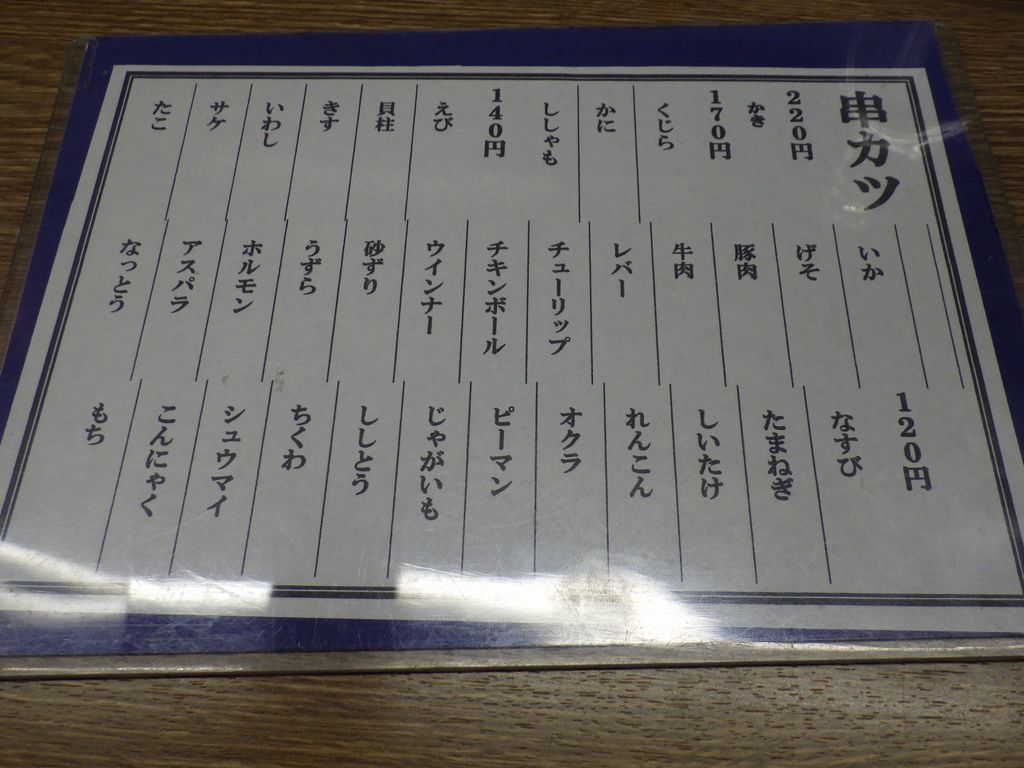 串カツ
220円
かき
170円
くじら
かに
ししゃも
140円
えび
貝柱
きす
いわし
サケ
たこ
いか
げそ
豚肉
牛肉
レバー
チューリップ
チキンボール
ウインナー
砂ずり
うずら
ホルモン
アスパラ
なっとう
120円
なすび
たまねぎ
しいたけ
れんこん
オクラ
ピーマン
じゃがいも
ししとう
ちくわ
シュウマイ
こんにゃく
もち